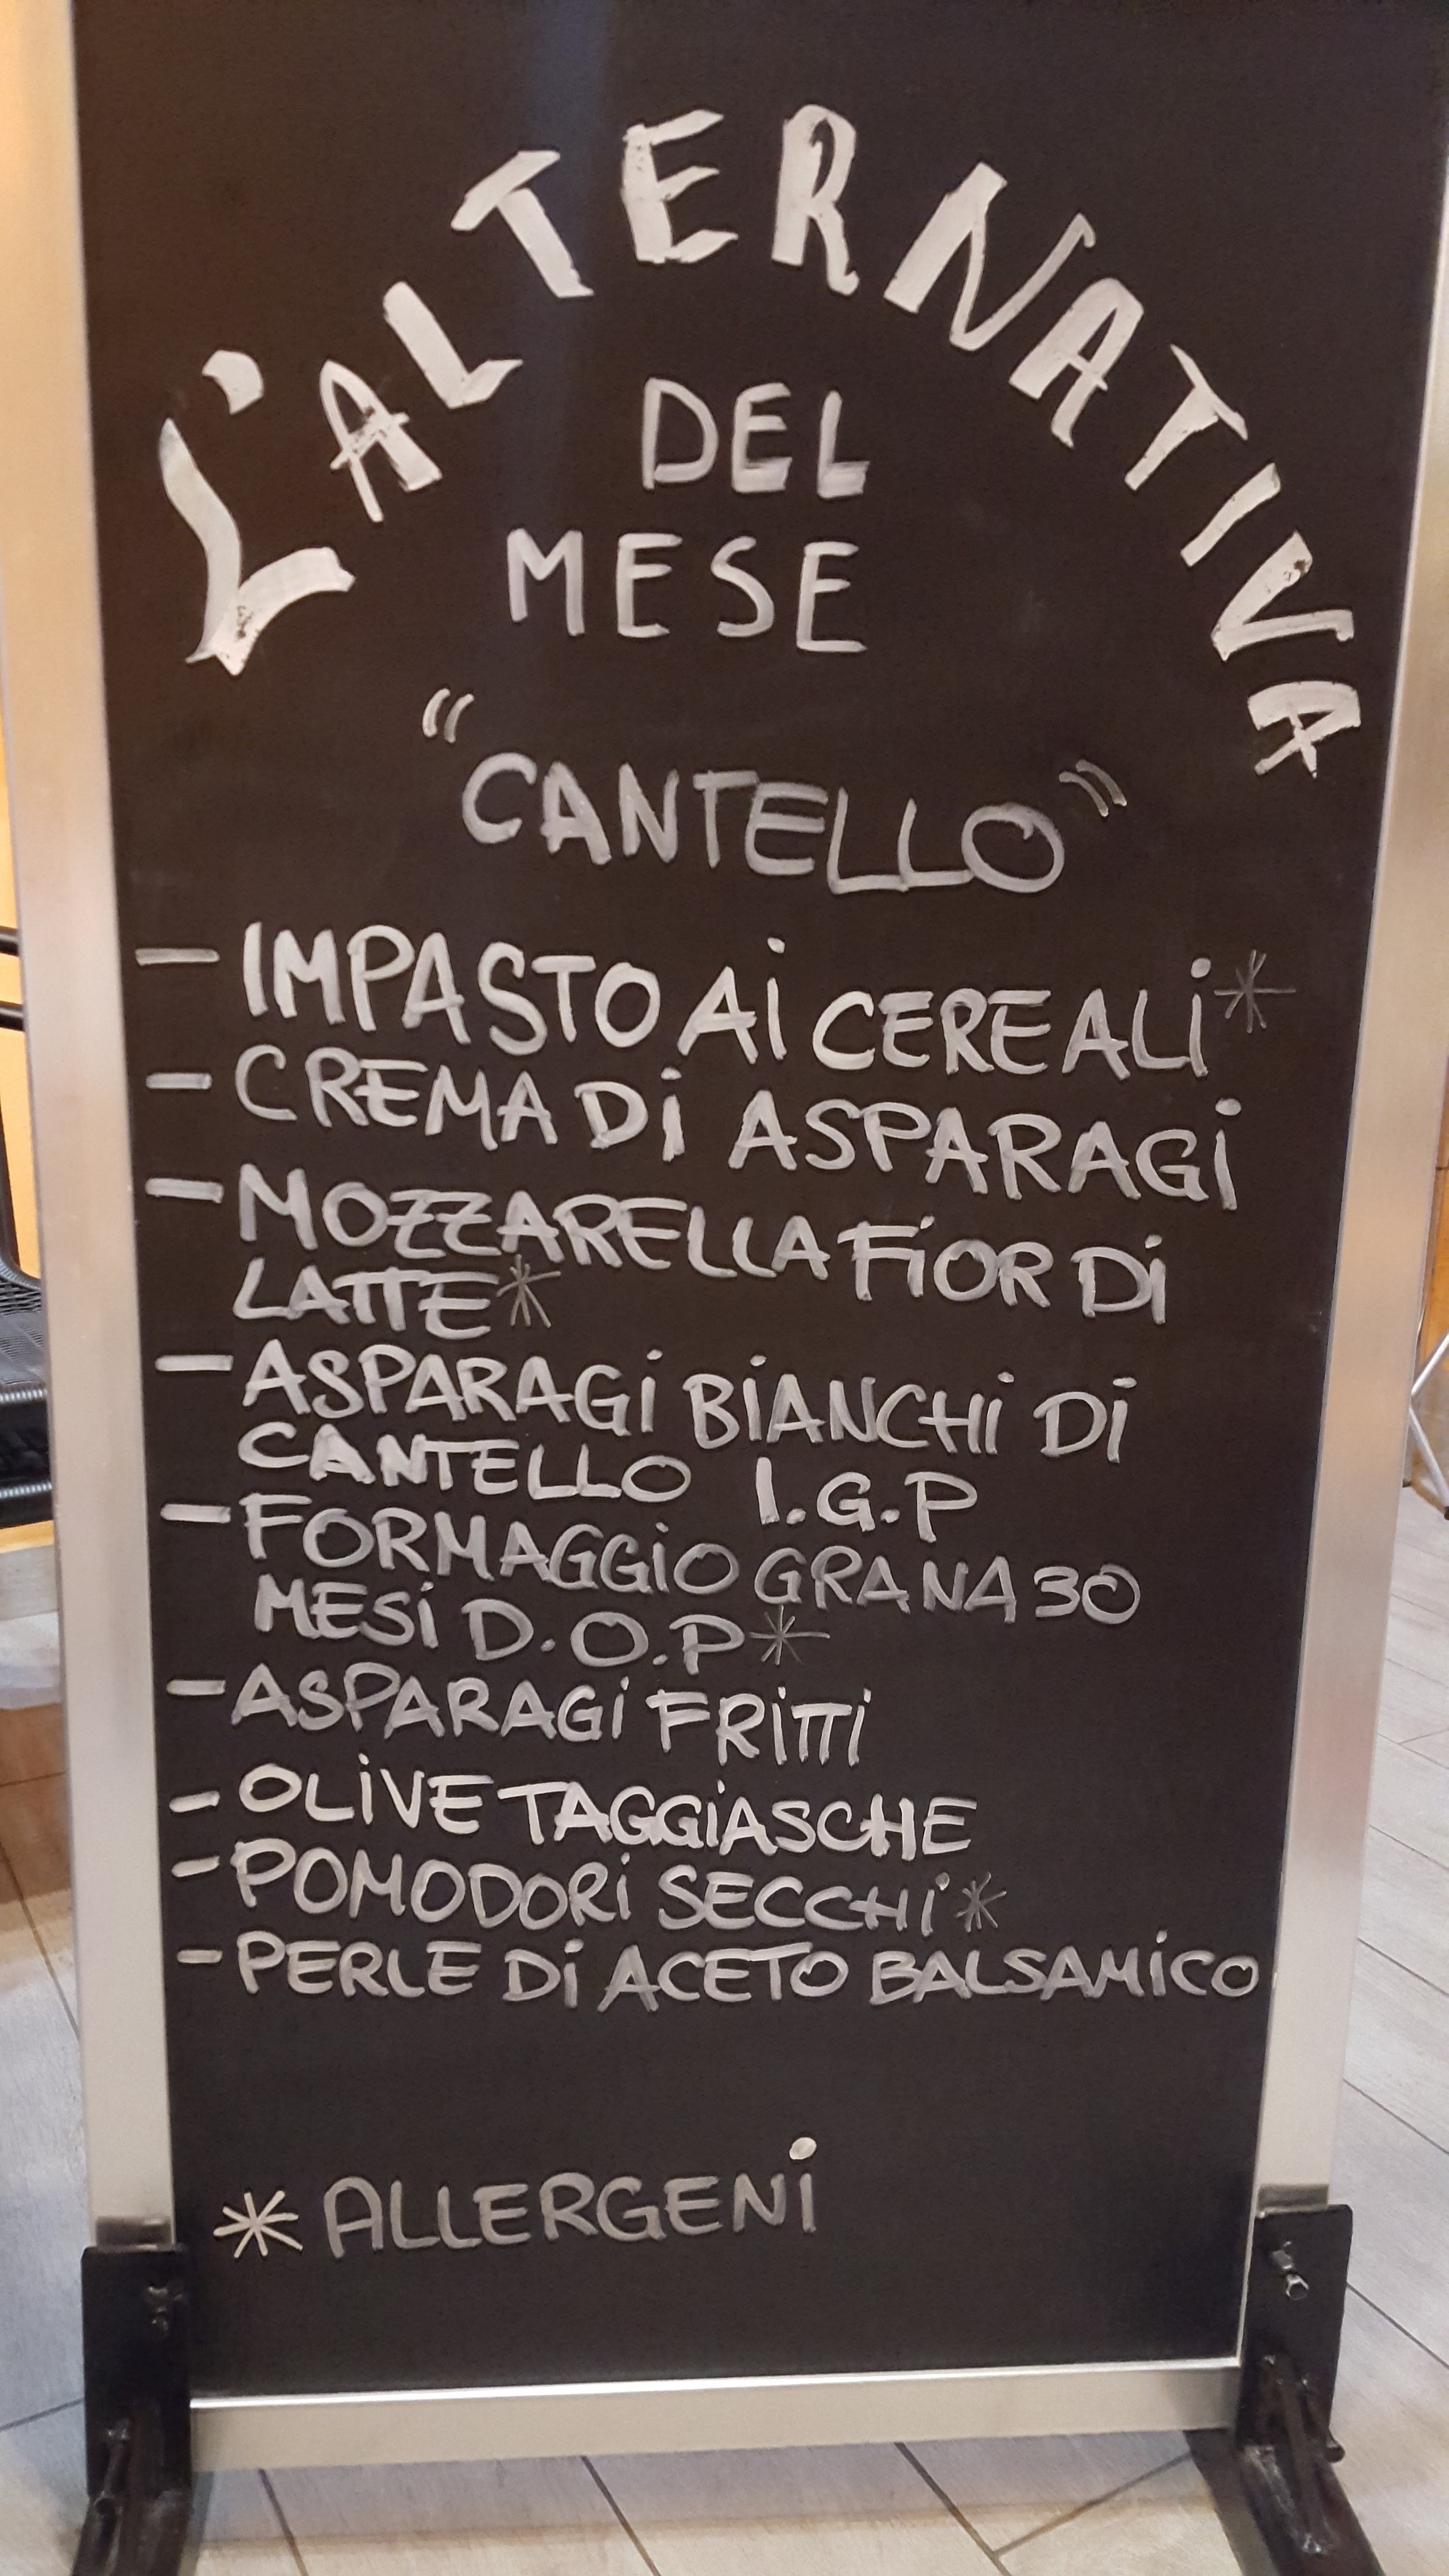 L'ALTERNATIVA
DEL
MESE
"CANTELLO"
- IMPASTO Ai CEREALi*
- CREMA Di ASPARAGi
- MOZZARELLA FiOR Di
LATTE*
- ASPARAGi BiANCHi Di
CANTELLO I.G.P
- FORMAGGiO GRANA 30
MESi D.O.P*
- ASPARAGi FRiTTi
- OLiVE TAGGiASCHE
- POMODORi SECCHi*
- PERLE Di ACETO BALSAMiCO
* ALLERGENi